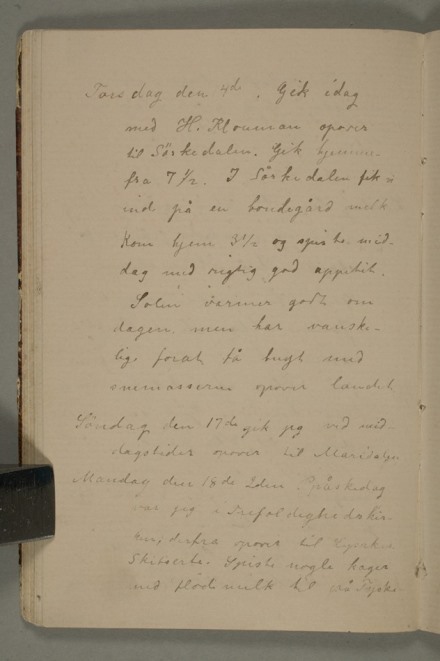 Torsdag den 4de. Gik idag
med H. Klouman opover
til Sørkedalen. Gik hjemme-
fra 7 1/2. I Sørkedalen fik vi
ind på en bondegård melk
Kom hjem 3 1/2 og spiste mid-
dag med rigtig god appitit.
Solen varmer godt om
dagen men har vanske-
lig forat få bugt med
snemasserne opover landet
Søndag den 17de gik jeg ved mid-
dagstider opover til Maridalen
Mandag den 18de 2den Påskedag
var jeg i Trefoldighedskir-
ken, derfra opover til
Spiste nogle kager
med flødemelk til på